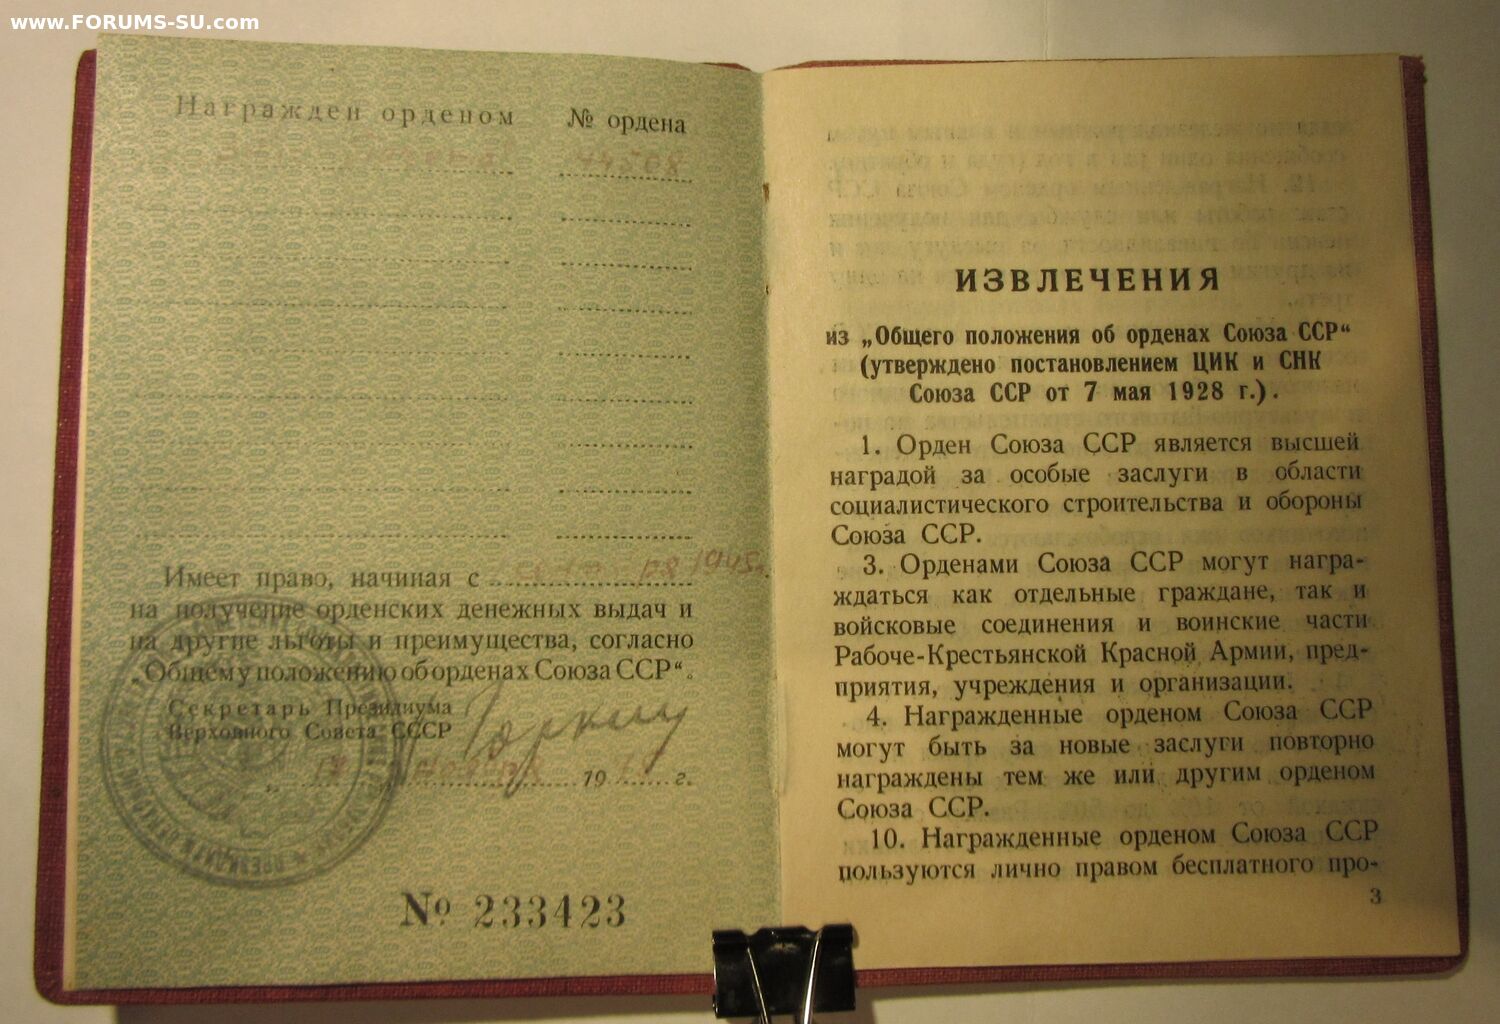 www.FORUMS-SU.com
Награжден орденом № ордена
44508
Имеет право, начиная с 1945г.
на получение орденских денежных выдач и
на другие льготы и преимущества, согласно
„Общему положению об орденах Союза ССР“.
Секретарь Президиума
Верховного Совета СССР
19 г.
№ 233423
ИЗВЛЕЧЕНИЯ
из „Общего положения об орденах Союза ССР“
(утверждено постановлением ЦИК и СНК
Союза ССР от 7 мая 1928 г.).
1. Орден Союза ССР является высшей
наградой за особые заслуги в области
социалистического строительства и обороны
Союза ССР.
3. Орденами Союза ССР могут награ-
ждаться как отдельные граждане, так и
войсковые соединения и воинские части
Рабоче-Крестьянской Красной Армии, пред-
приятия, учреждения и организации.
4. Награжденные орденом Союза ССР
могут быть за новые заслуги повторно
награждены тем же или другим орденом
Союза ССР.
10. Награжденные орденом Союза ССР
пользуются лично правом бесплатного про-
3